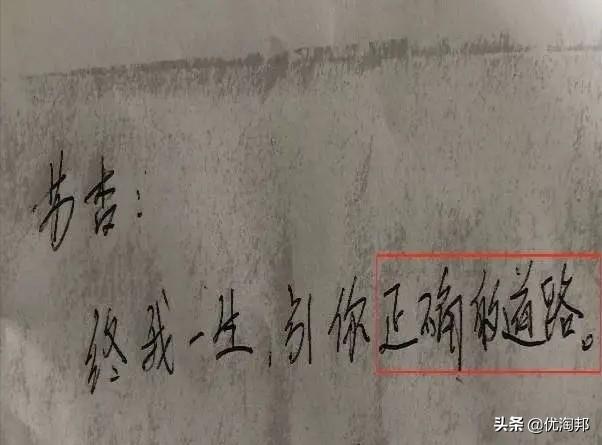 芳杏：
终我一生，引你正确的道路。
头条 @优淘邦